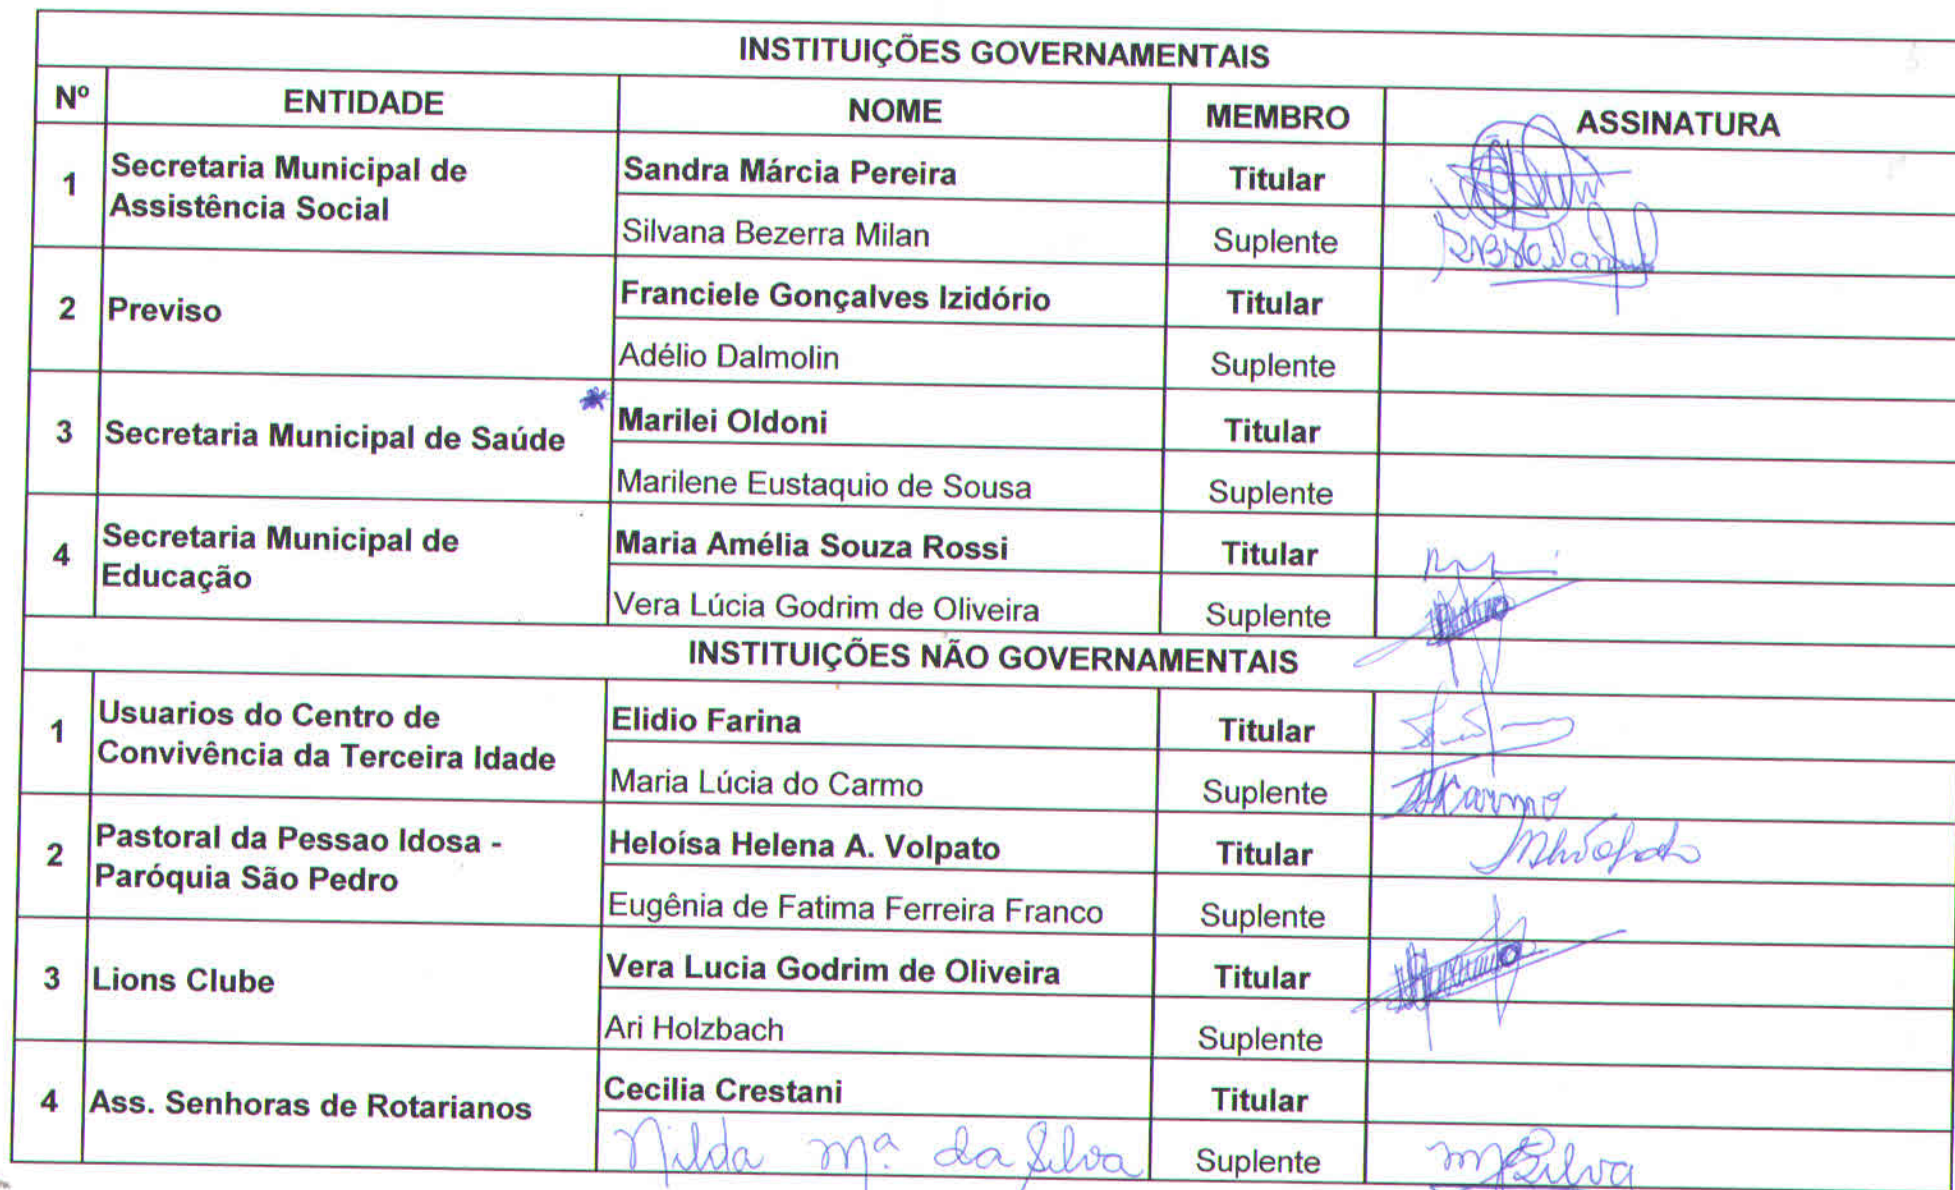 INSTITUIÇÕES GOVERNAMENTAIS
Nº ENTIDADE NOME MEMBRO ASSINATURA
1 Secretaria Municipal de Assistência Social Sandra Márcia Pereira Titular
Silvana Bezerra Milan Suplente
2 Previso Franciele Gonçalves Izidório Titular
Adélio Dalmolin Suplente
3 Secretaria Municipal de Saúde * Marilei Oldoni Titular
Marilene Eustaquio de Sousa Suplente
4 Secretaria Municipal de Educação Maria Amélia Souza Rossi Titular
Vera Lúcia Godrim de Oliveira Suplente
INSTITUIÇÕES NÃO GOVERNAMENTAIS
1 Usuarios do Centro de Convivência da Terceira Idade Elidio Farina Titular
Maria Lúcia do Carmo Suplente Carmo
2 Pastoral da Pessao Idosa - Paróquia São Pedro Heloísa Helena A. Volpato Titular
Eugênia de Fatima Ferreira Franco Suplente
3 Lions Clube Vera Lucia Godrim de Oliveira Titular
Ari Holzbach Suplente
4 Ass. Senhoras de Rotarianos Cecilia Crestani Titular
Nilda Mª da Silva Suplente MSilva